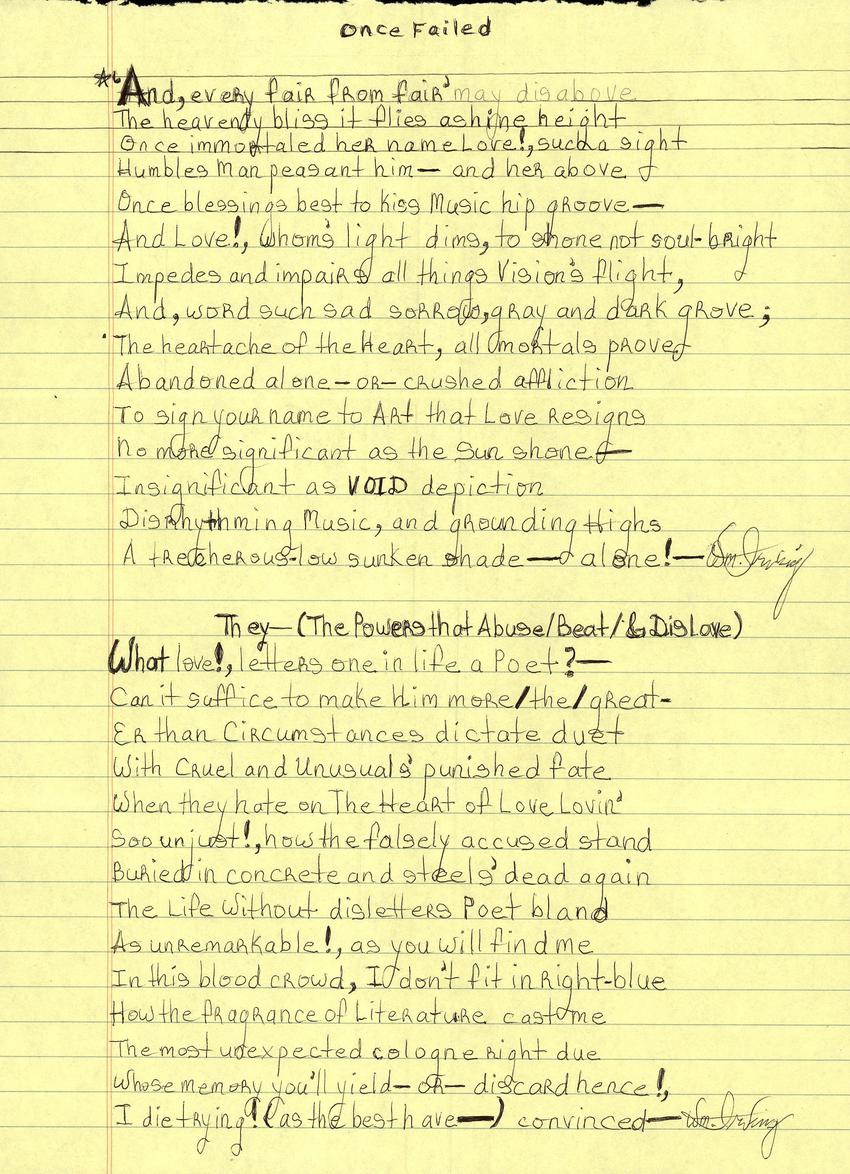 Once Failed
*"And, every fair from fair' may disabove
The heavenly bliss it flies ashine height
Once immortaled her name Love!, such a sight
Humbles Man peasant him— and her above
Once blessings best to kiss Music hip groove—
And Love!, Whom's light dims, to shone not soul-bright
Impedes and impairs all things Vision's flight,
And, word such sad sorrows, gray and dark grove;
The heartache of the Heart, all mortals prove
Abandoned alone—or—crushed affliction
To sign your name to Art that Love Resigns
No more significant as the Sun shone—
Insignificant as VOID depiction
Disrhythmming Music, and grounding Highs
A trecherous-low sunken shade— alone!—Wm. Irving
They—(The Powers that Abuse/Beat/& DisLove)
What love!, letters one in life a Poet?—
Can it suffice to make Him more/the/great-
Er than Circumstances dictate duet
With Cruel and Unusuals' punished fate
When they hate on The Heart of Love Lovin'
Soo unjust!, how the falsely accused stand
Buried in concrete and steels' dead again
The Life Without disletters Poet bland
As unremarkable!, as you will find me
In this blood crowd, I don't fit in Right-blue
How the fragrance of Literature cast me
The most unexpected cologne right due
Whose memory you'll yield—or—discard hence!,
I die trying! (as the best have—) convinced—Wm. Irving